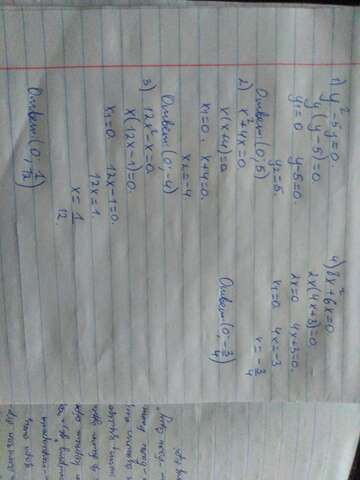 1) y²-5y=0.
y(y-5)=0
y₁=0 y-5=0.
y₂=5.
Ответ (0; 5)
2) x²+4x=0
x(x+4)=0
x₁=0, x+4=0.
x₂=-4
Ответ (0; -4)
3) 12x²-x=0.
x(12x-1)=0.
x₁=0 12x-1=0.
12x=1.
x=1/12.
Ответ (0; 1/12)
4) 8x²+6x=0
2x(4x+3)=0
2x=0 4x+3=0.
x₁=0 4x=-3
x=-3/4
Ответ (0; -3/4)